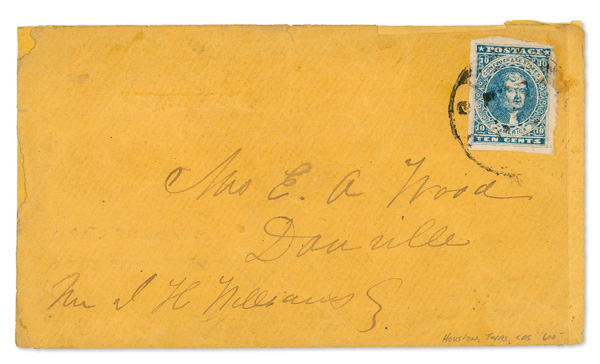 POSTAGE
10 10
CONFEDERATE STATES
AMERICA
10 10
TEN CENTS
Mrs E. A Wood
Danville
Mr J H Williams
Houston, Texas, CDS 600-